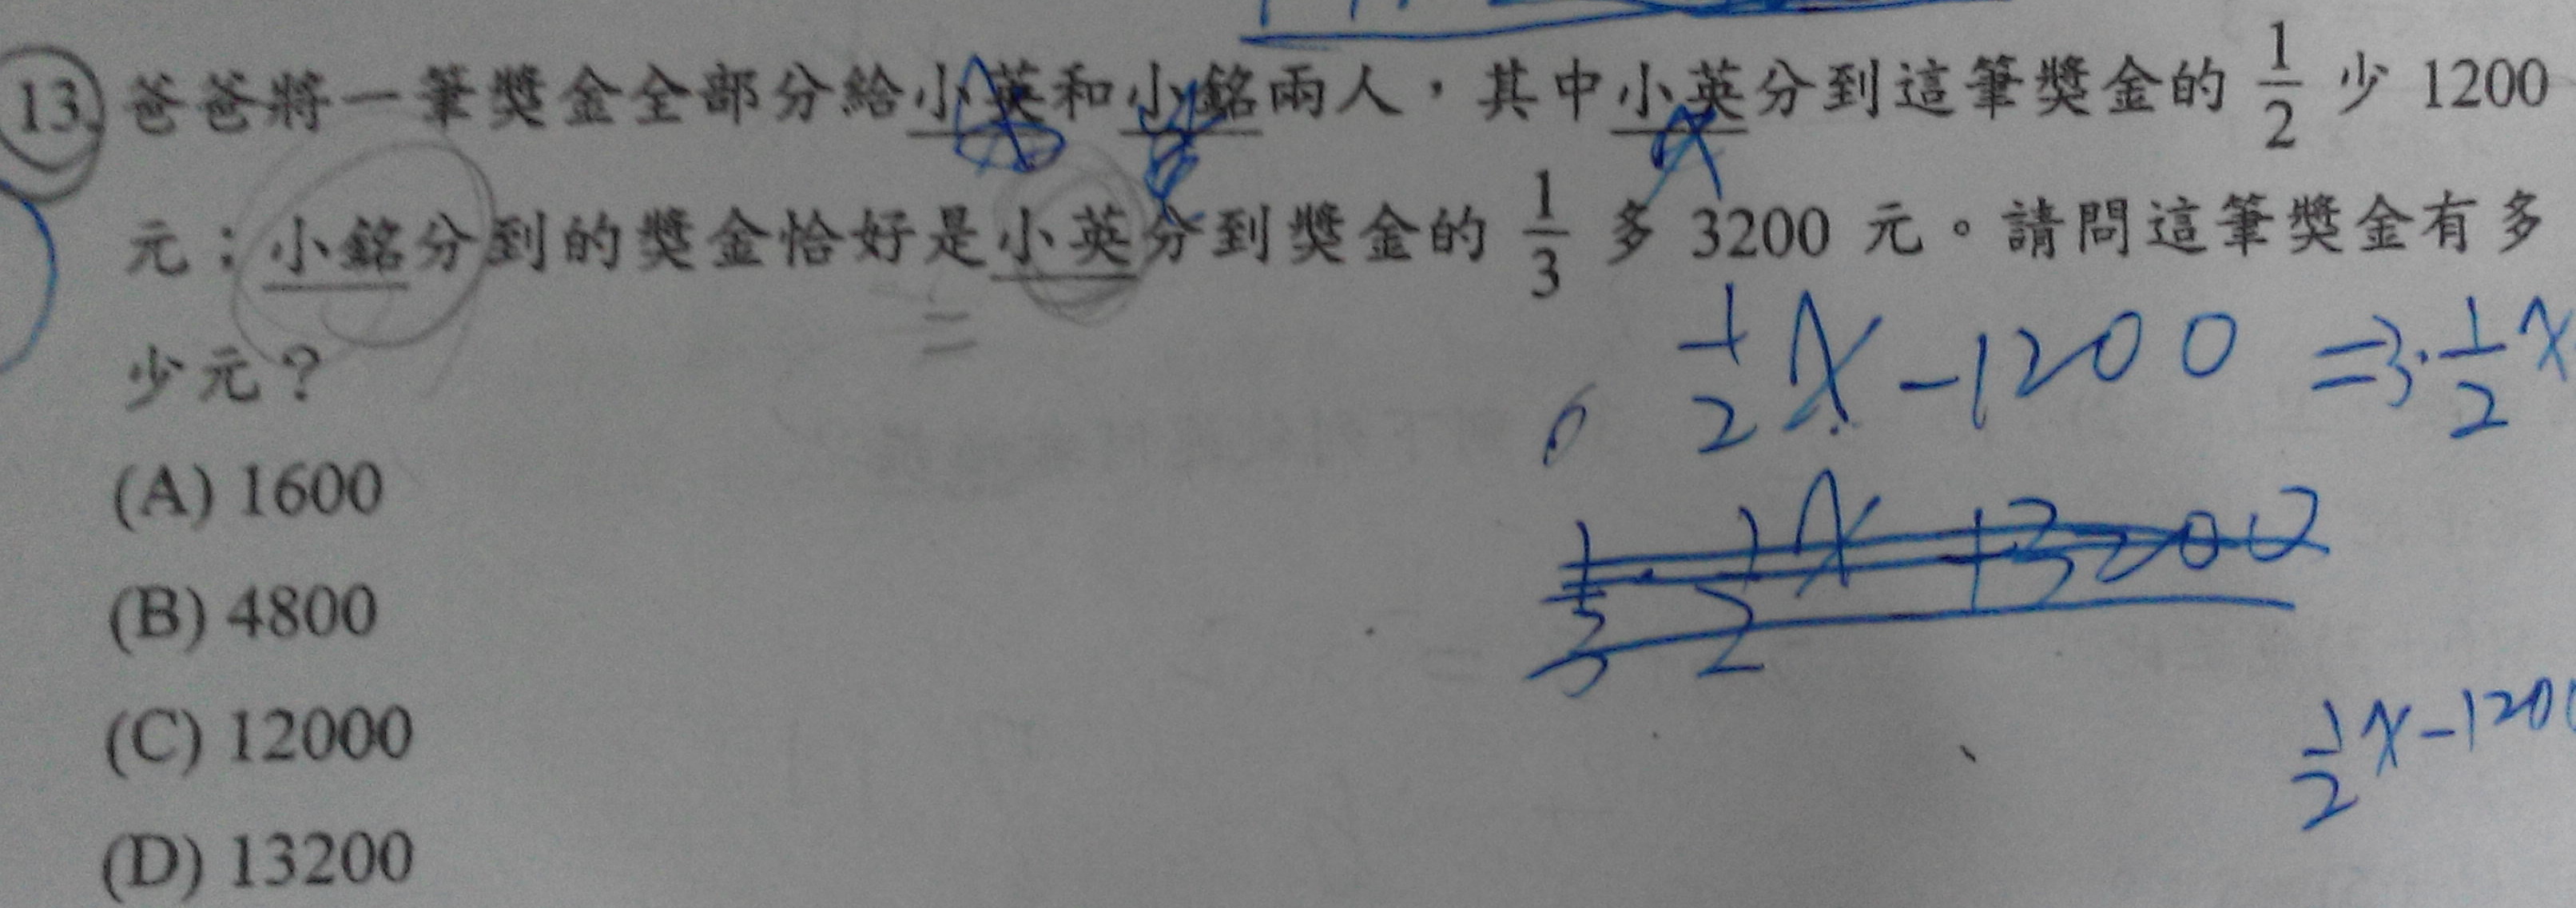 13. 爸爸將一筆獎金全部分給小英和小銘兩人，其中小英分到這筆獎金的 1/2 少 1200
元；小銘分到的獎金恰好是小英分到獎金的 1/3 多 3200 元。請問這筆獎金有多
少元？
1/2 x - 1200 = 3 · 1/2 x
(A) 1600
1/3 · 1/2 x + 3200
(B) 4800
(C) 12000
1/2 x - 120
(D) 13200